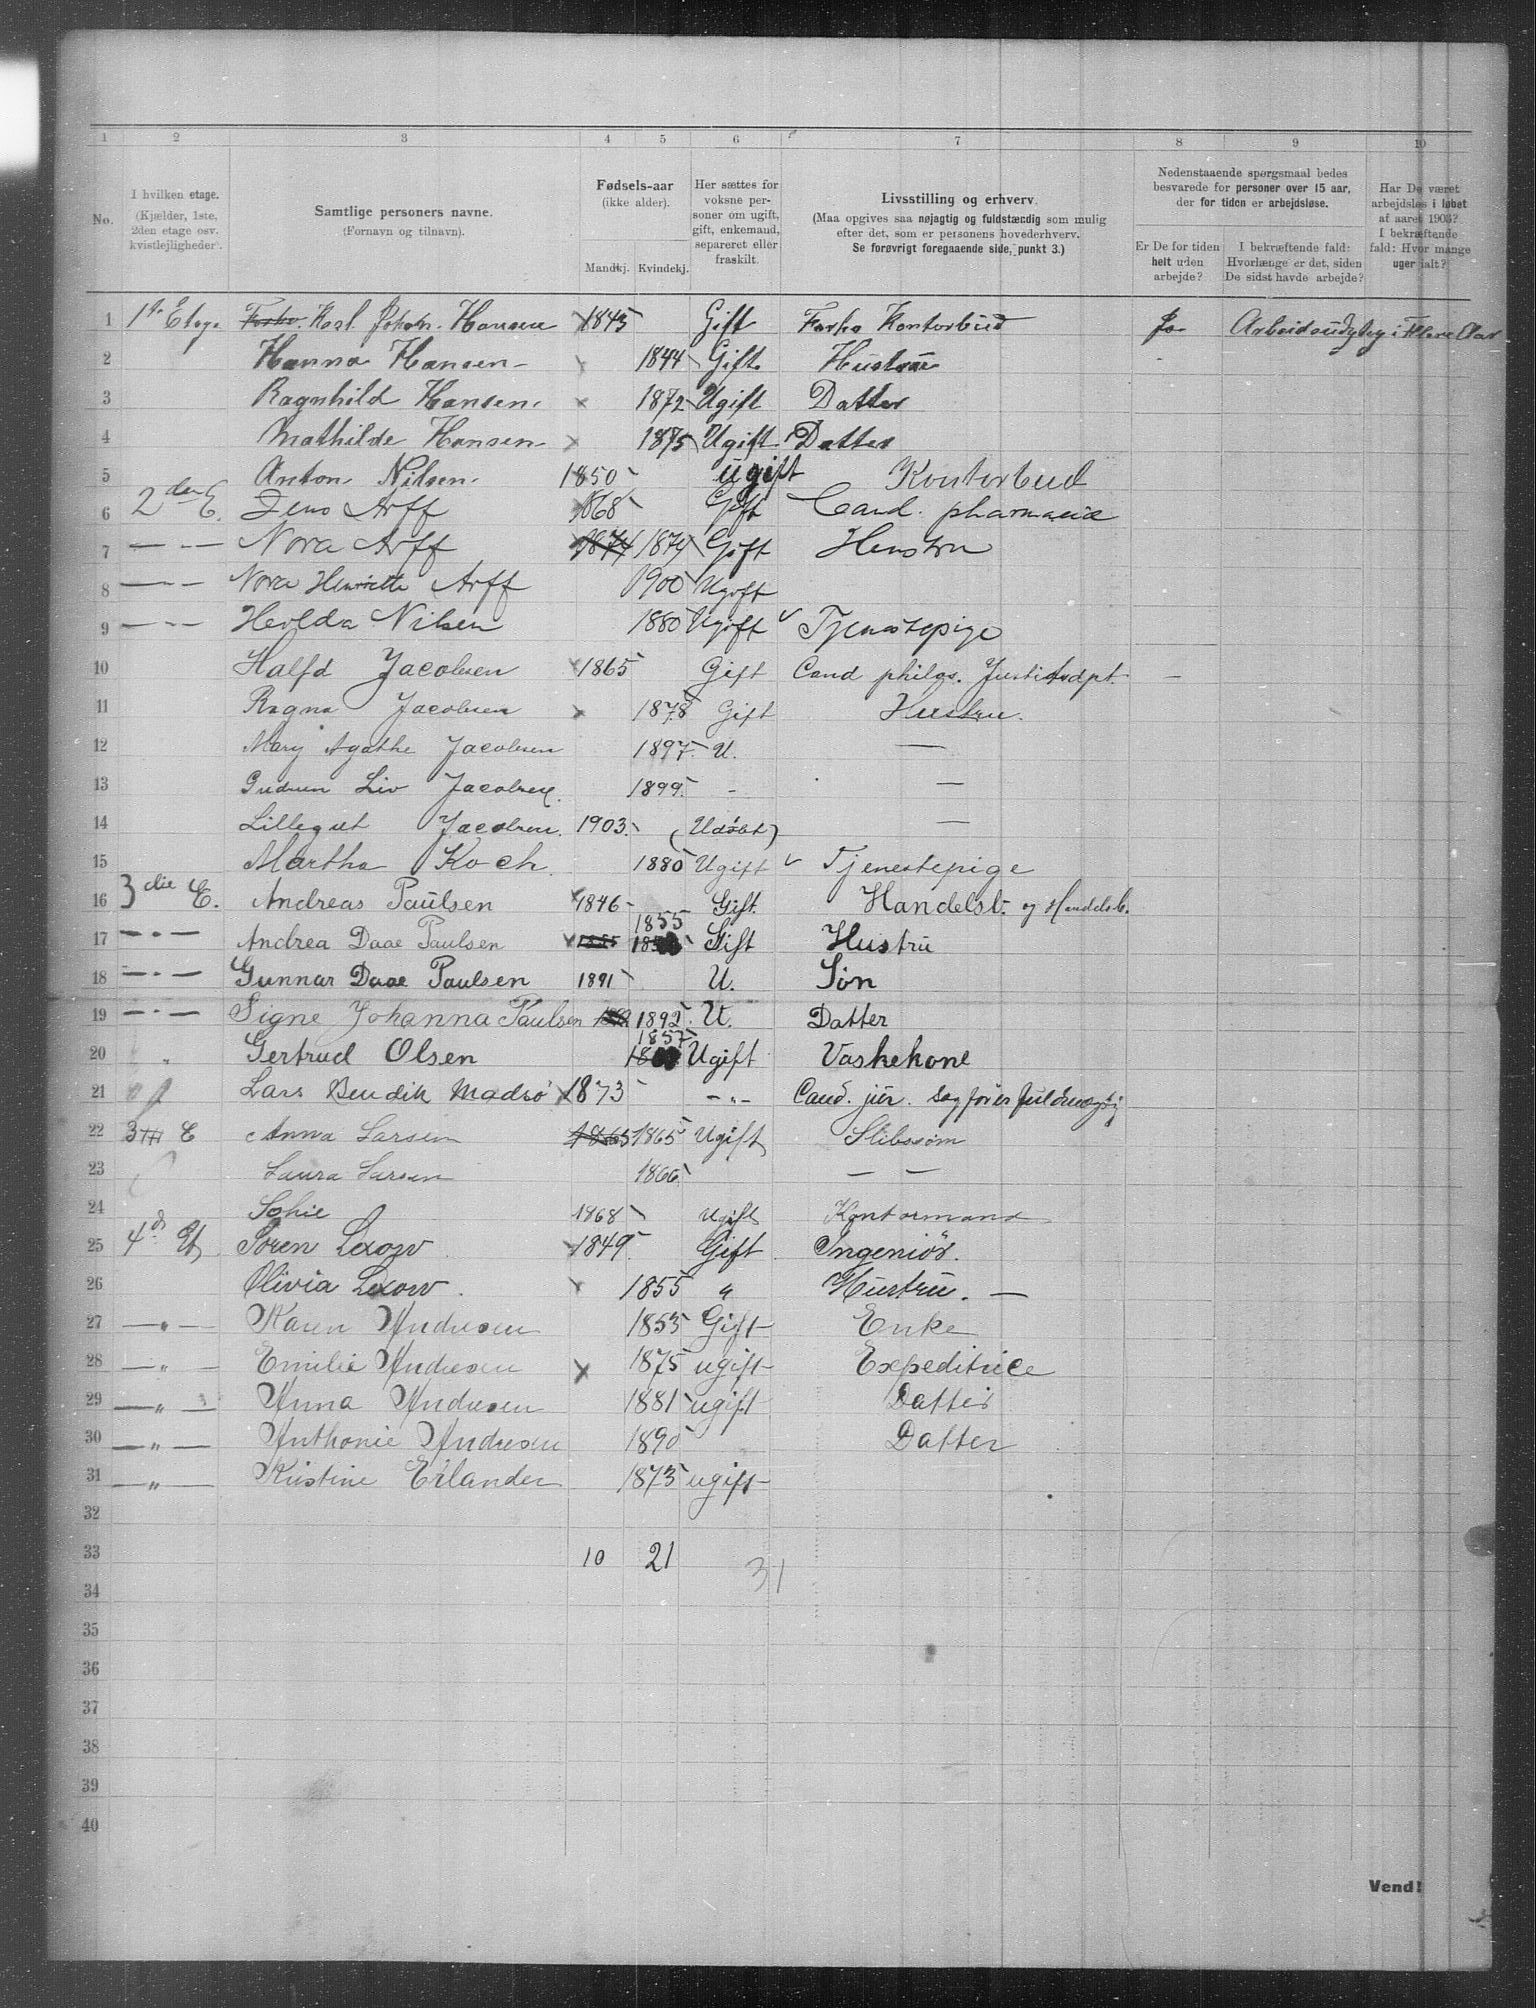 1 2 3 4 5 6 7 8 9 10
No.
I hvilken etage.
(Kjælder, 1ste, 2den etage osv. kvistlejligheder).
Samtlige personers navne.
(Fornavn og tilnavn).
Fødsels-aar
(ikke alder).
Mandkj. Kvindekj.
Her sættes for voksne personer om ugift, gift, enkemand, separeret eller fraskilt.
Livsstilling og erhverv.
(Maa opgives saa nøjagtig og fuldstændig som mulig efter det, som er personens hovederhverv.
Se forøvrigt foregaaende side, punkt 3.)
Nedenstaaende spørgsmaal bedes besvarede for personer over 15 aar, der for tiden er arbejdsløse.
Er De for tiden helt uden arbejde?
I bekræftende fald: Hvorlænge er det, siden De sidst havde arbejde?
Har De været arbejdsløs i løbet af aaret 1903? I bekræftende fald: Hvor mange uger ialt?
1 1ste Etage Forhv. Karl Johan Hansen 1845 Gift Forhv Kontorbud Ja Arbeidsudygtig i flere Aar
2 Hanna Hansen 1844 Gift Hustrue
3 Ragnhild Hansen 1872 Ugift Datter
4 Mathilde Hansen 1875 Ugift Datter
5 Anton Nilsen 1850 ugift Kontorbud
6 2den E. Jens Arff 1868 Gift Cand. pharmacie
7 — " — Nora Arff 1874 1874 Gift Hustru
8 — " — Nora Henriette Arff 1900 Ugift
9 — " — Hevlda Nilsen 1880 Ugift Tjenestepige
10 Halfd Jacobsen 1865 Gift Cand philos. Justitsdpt. —
11 Ragna Jacobsen 1878 Gift Hustru.
12 Mary Agathe Jacobsen 1897 U. —
13 Gudrun Liv Jacobsen. 1899. - —
14 Lillegut Jacobsen. 1903. (Udøbt) —
15 Martha Koch. 1880 Ugift Tjenestepige
16 3die E. Andreas Paulsen 1846 Gift. Handelsb. og Handelsb.
17 — " — Andrea Daae Paulsen 1855 1855 Gift Hustru
18 — " — Gunnar Daae Paulsen 1891 U. Søn
19 — " — Signe Johanna Paulsen 1892 1892. U. Datter
20 " Gertrud Olsen 1857 Ugift Vaskekone
21 Lars Bendik Madsø 1873 — " — Cand. jur. Sagførerfuldmægtig
22 3 E Anna Larsen 1865 1865 Ugift Slibssøm
23 Laura Larsen 1866 — —
24 Sofie 1868 Ugift Kontormand
25 4d Et Søren Lexow 1849 Gift Ingeniør.
26 Olivia Lexow. 1855 " Hustru. —
27 — " — Karen Andresen 1853 Gift Enke
28 — " — Emilie Andresen 1875 ugift Expeditrice
29 — " — Anna Andresen 1881 ugift Datter
30 — " — Anthonie Andresen 1890 Datter
31 — " — Kristine Erlander 1873 ugift
32
33 10 21
34 31
35
36
37
38
39
40
Vend!